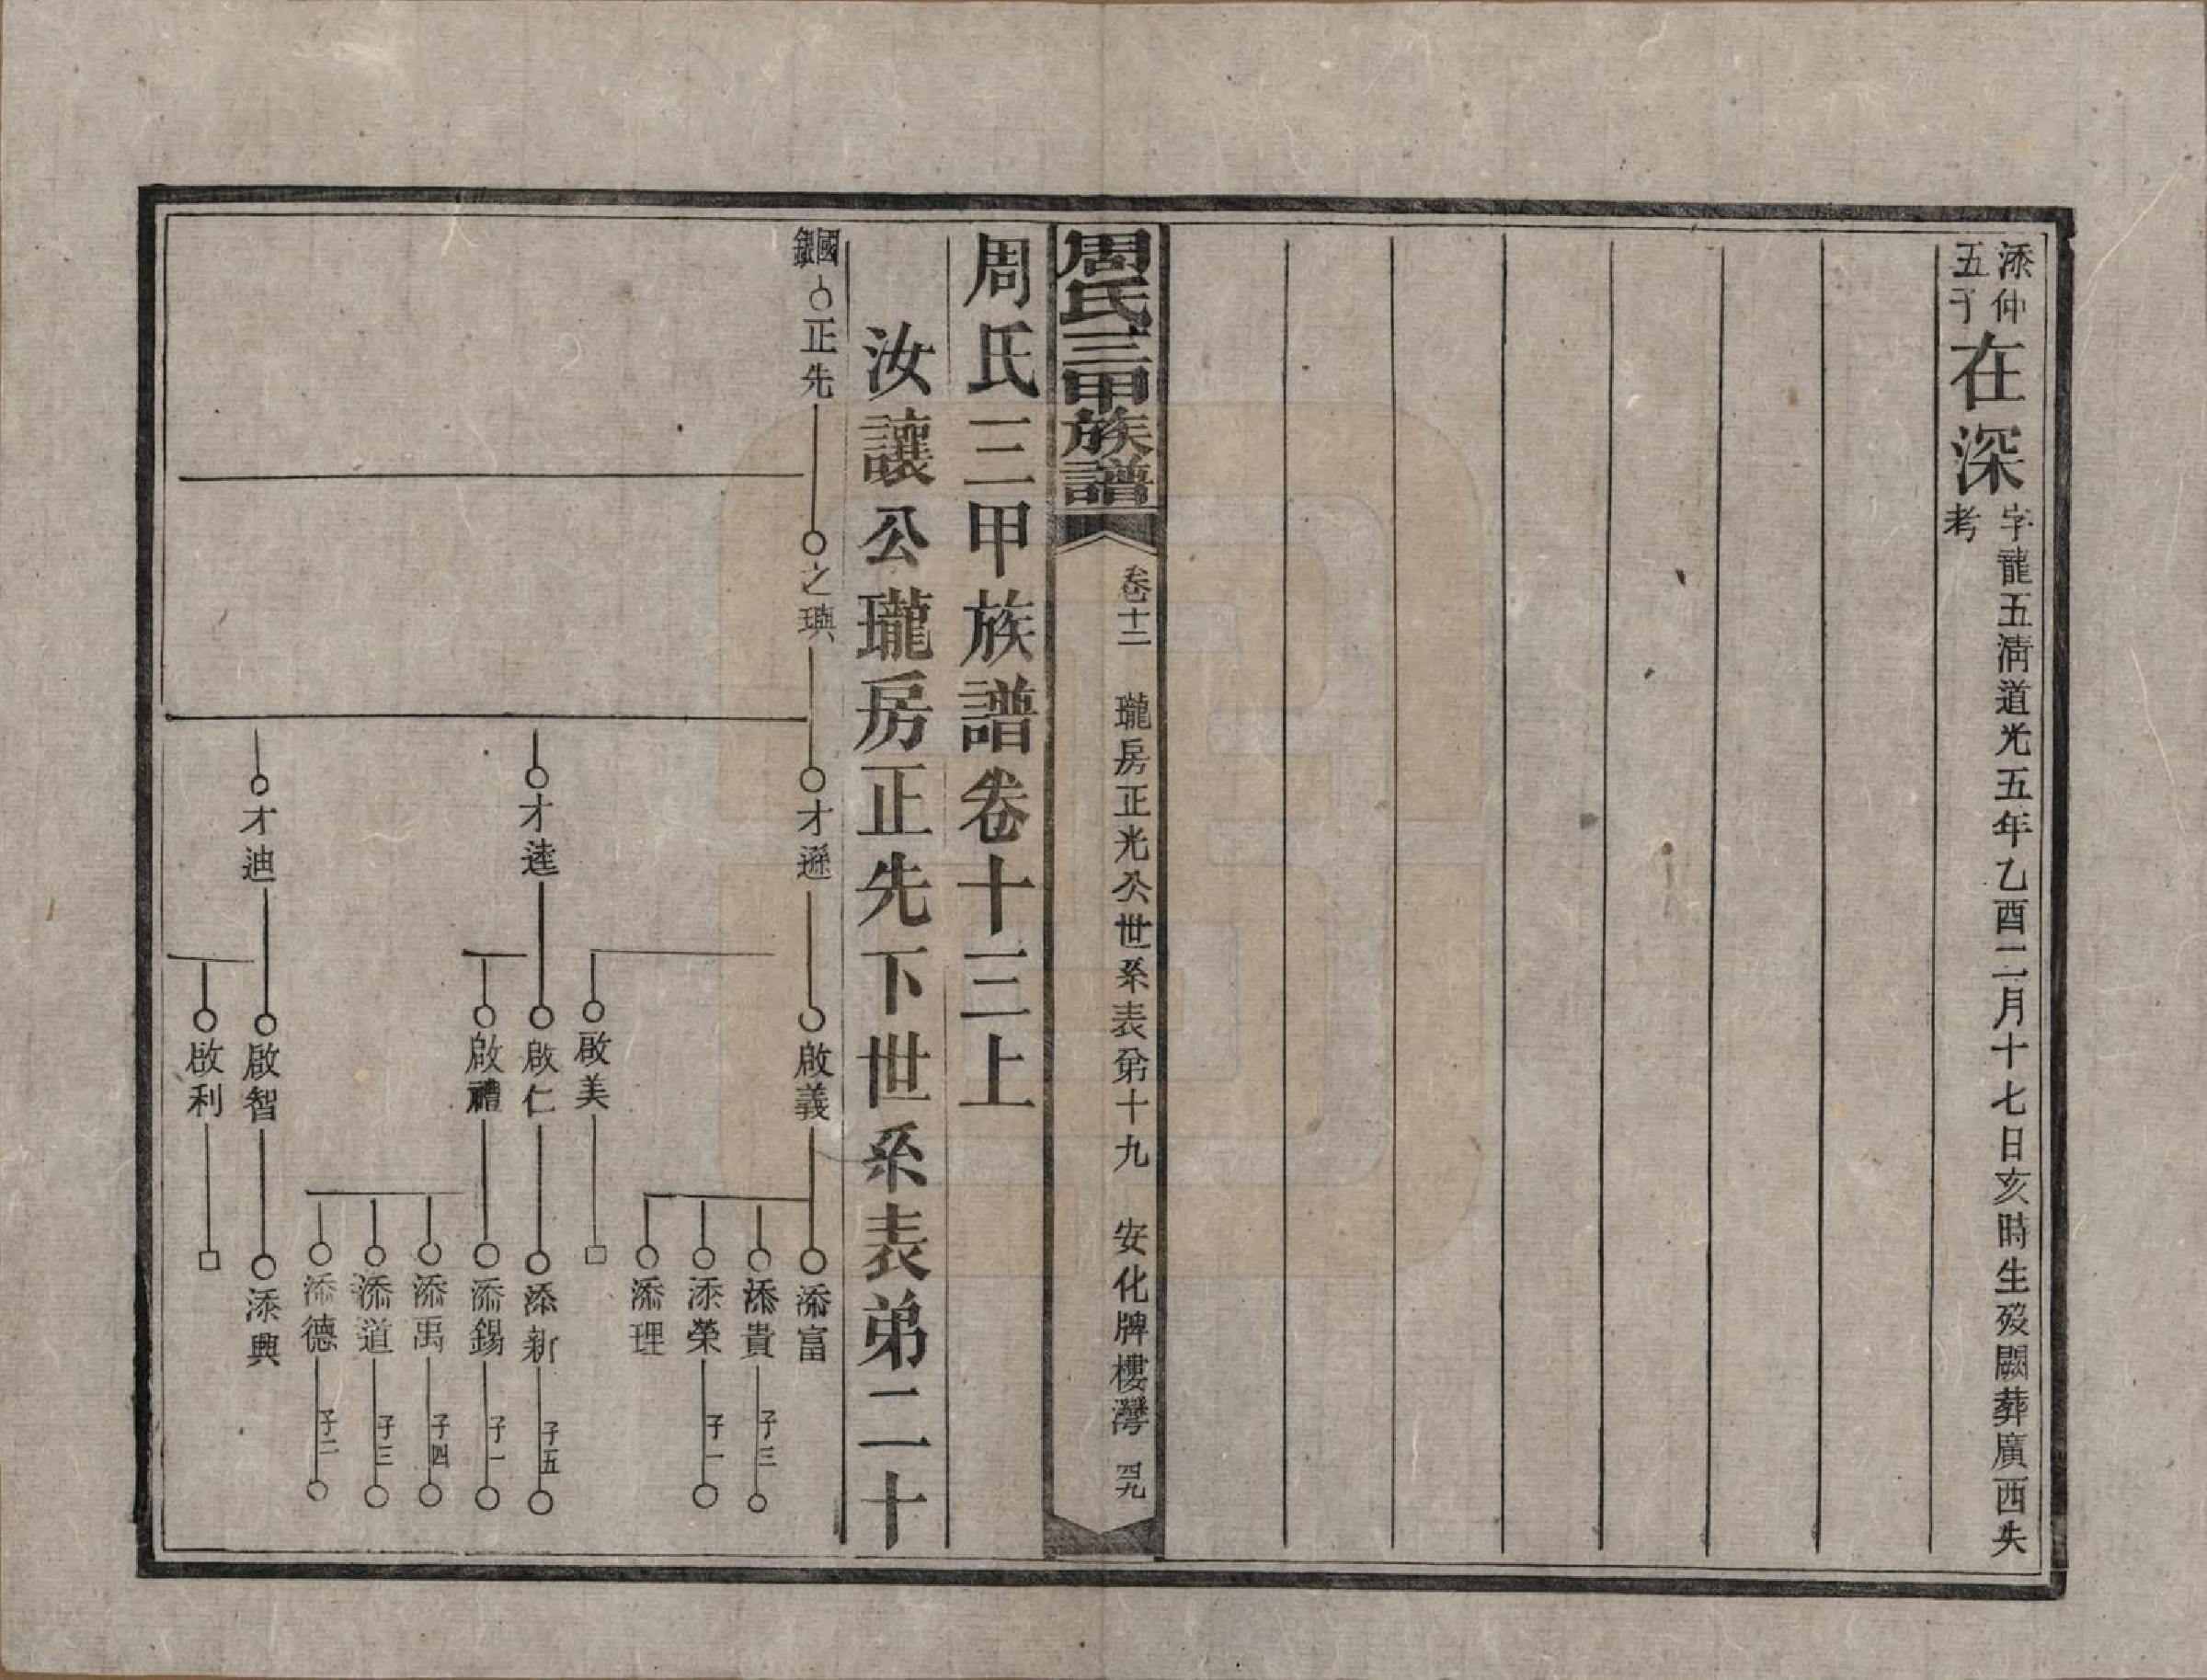 添仲
五子
在深
字龍五清道光五年乙酉二月十七日亥時生歿闕葬廣西失
考
周氏三甲族譜
卷十二
瓏房正光公世系表第十九
安化牌樓灣
四九
周氏三甲族譜卷十三上
汝讓公瓏房正先下世系表弟二十
國
正先
之璵
才遜
啟義
添富
添貴
子三
添榮
子一
添理
啟美
才逵
啟仁
添新
子五
啟禮
添錫
子一
添禹
子四
添道
子三
添德
子二
才迪
啟智
添興
啟利